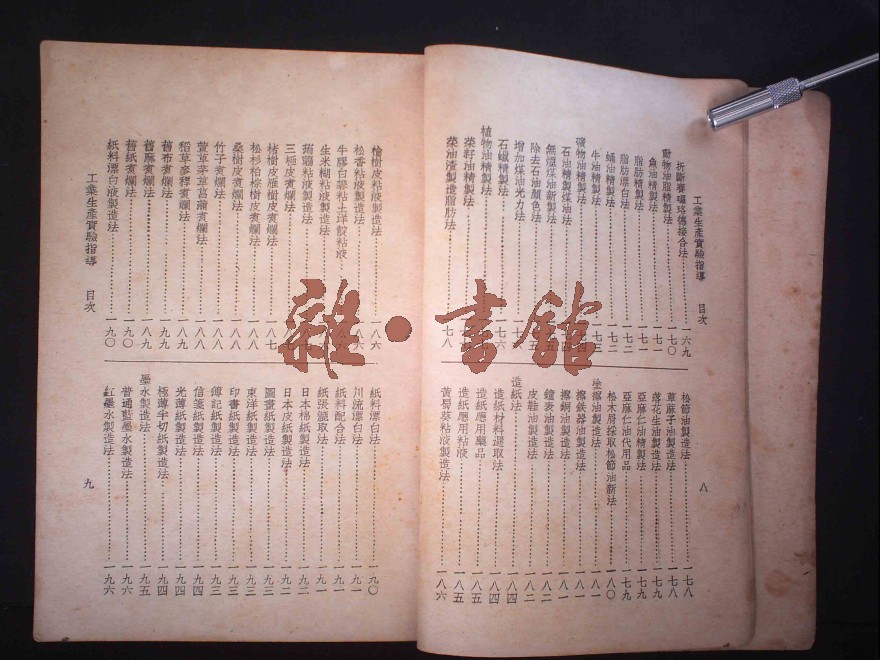 工業生產實驗指導 目次
折斷賽璐珞傳接合法……一六九
動物油脂精製法……一七〇
魚油精製法……一七一
脂肪精製法……一七一
脂肪漂白法……一七二
蛹油精製法……一七二
牛油精製法……一七三
礦物油精製法
石油精製煤油法
無煙煤油新製法
除去石油顏色法
增加煤油光力法
石蠟精製法
植物油精製法
菜籽油精製法
菜油渣製造脂肪法……一七八
松節油製造法……一七八
草麻子油製造法……一七八
落花生油製造法……一七九
亞麻仁油精製法……一七九
亞麻仁油代用品……一七九
松木屑採取松節油新法……一八〇
塗擦油製造法……一八一
擦鐵器油製造法……一八一
擦銅油製造法……一八一
鐘表油製造法……一八二
皮鞋油製造法……一八二
造紙法……一八四
造紙材料選取法……一八四
造紙應用藥品……一八五
造紙應用粘液……一八五
黃蜀葵粘液製造法……一八六
八
檜樹皮粘液製造法……一八六
松香粘液製造法……一八六
牛膠白礬粘土洋靛粘液
生米糊粘液製造法
蒟蒻粘液製造法
三椏皮煮爛法
楮樹皮雁樹皮煮爛法……一八七
松杉柏棕樹皮煮爛法……一八八
桑樹皮煮爛法……一八八
竹子煮爛法……一八八
萱草茅草菖蒲煮爛法……一八八
稻草麥稈煮爛法……一八九
舊布煮爛法……一八九
舊麻煮爛法……一八九
舊紙煮爛法……一九〇
紙料漂白液製造法……一九〇
工業生產實驗指導 目次
紙料漂白法……一九〇
川流漂白法……一九一
紙料配合法……一九一
紙張漉取法……一九一
日本棉紙製造法……一九二
日本皮紙製造法……一九二
圖畫紙製造法……一九三
東洋紙製造法……一九三
印書紙製造法……一九三
簿記紙製造法……一九三
信箋紙製造法……一九四
光薄紙製造法……一九四
極薄半切紙製造法……一九四
墨水製造法……一九五
普通藍墨水製造法……一九六
紅墨水製造法……一九六
九
雜·書館